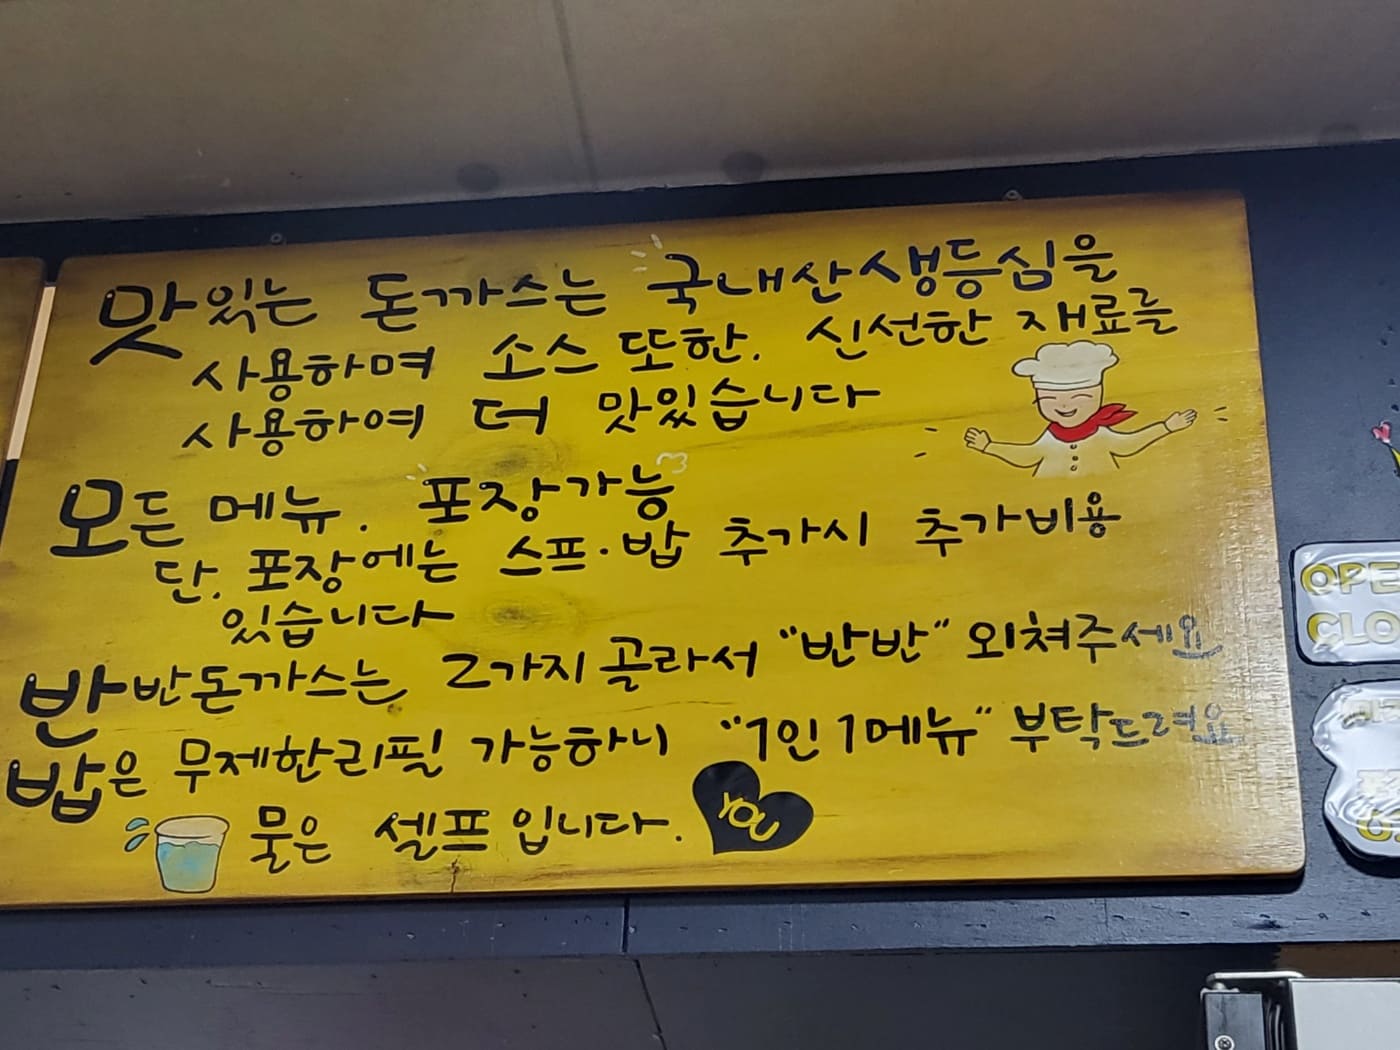 맛있는 돈까스는 국내산생등심을
사용하며 소스 또한. 신선한 재료를
사용하여 더 맛있습니다
모든 메뉴. 포장가능
단. 포장에는 스프·밥 추가시 추가비용
있습니다
반반돈까스는 2가지 골라서 "반반" 외쳐주세요
밥은 무제한리필 가능하니 "1인1메뉴" 부탁드려요
물은 셀프입니다.
YOU